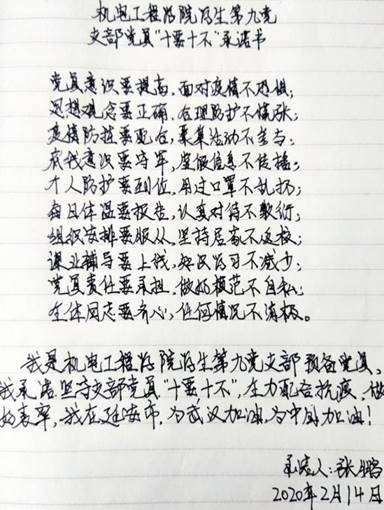 机电工程学院学生第九党
支部党员"十要十不"承诺书
党员意识要提高，面对疫情不恐惧；
思想观念要正确，合理防护不慌张；
疫情防控要配合，聚集活动不参与；
自我意识要守牢，虚假信息不传播；
个人防护要到位，用过口罩不乱扔；
每日体温要报告，认真对待不敷衍；
组织安排要服从，坚持居家不返校；
课业辅导要上线，知识学习不减少；
党员责任要承担，做好模范不自私；
全体同志要齐心，任何情况不消极。
我是机电工程学院学生第九党支部预备党员，
我承诺坚守支部党员"十要十不"，全力配合抗疫，做
好表率，我在延安市，为武汉加油，为中国加油！
承诺人：张鹏
2020年2月14日